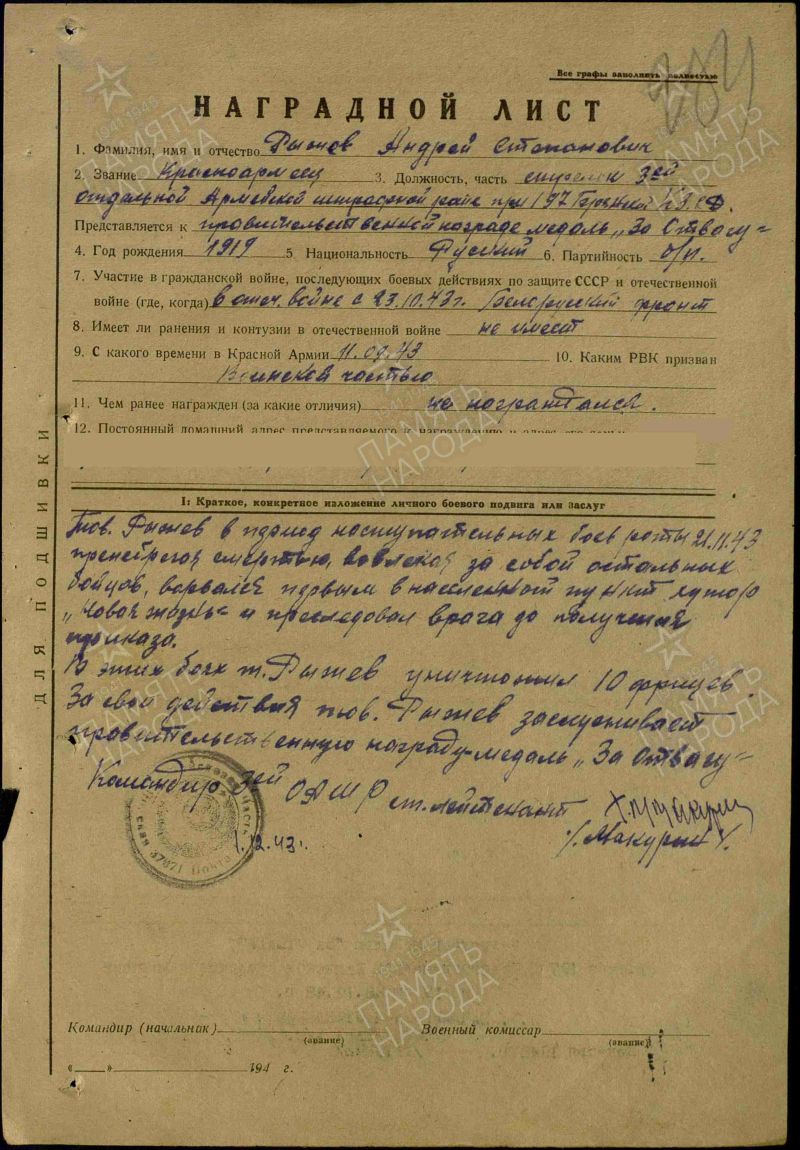 Все графы заполнять полностью
284
НАГРАДНОЙ ЛИСТ
1. Фамилия, имя и отчество Рыжев Андрей Степанович
2. Звание Красноармеец 3. Должность, часть стрелок 3ей
отдельной Армейской штрафной роте при 197
Представляется к правительственной награде медаль „За Отвагу"
4. Год рождения 1919 5 Национальность Русский 6. Партийность б/п.
7. Участие в гражданской войне, последующих боевых действиях по защите СССР и отечественной
войне (где, когда) В отеч. войне с 23.10.43г. Белорусский фронт
8. Имеет ли ранения и контузии в отечественной войне не имеет
9. С какого времени в Красной Армии 11.09.43 10. Каким РВК призван
Воинской частью
11. Чем ранее награжден (за какие отличия) не награждался.
12. Постоянный домашний адрес представляемого к награждению и адрес его семьи
I: Краткое, конкретное изложение личного боевого подвига или заслуг
Тов. Рыжев в период наступательных боев роты 21.11.43
пренебрегая смертью, вовлекая за собой остальных
бойцов, ворвался первым в населенный пункт хутор
„Новая жизнь" и преследовал врага до получения
приказа.
В этих боях т. Рыжев уничтожил 10 фрицев.
За свои действия тов. Рыжев заслуживает
правительственную награду-медаль „За Отвагу"
Командир 3ей ОАШР ст. лейтенант
/Макурин Х.
1.12.43г.
37871
Командир (начальник) Военный комиссар
(звание) (звание)
« » 194 г.
ДЛЯ ПОДШИВКИ
1941 1945
ПАМЯТЬ
НАРОДА